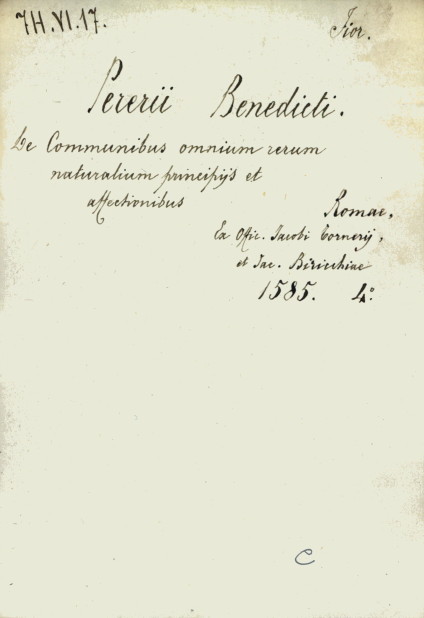 7H.VI.17.
Fior.
Pererii Benedicti.
De Communibus omnium rerum
naturalium principijs et
affectionibus
Romae,
Ex Offic. Jacobi Tornerij,
et Jac. Biricchiae
1585. 4°.
C